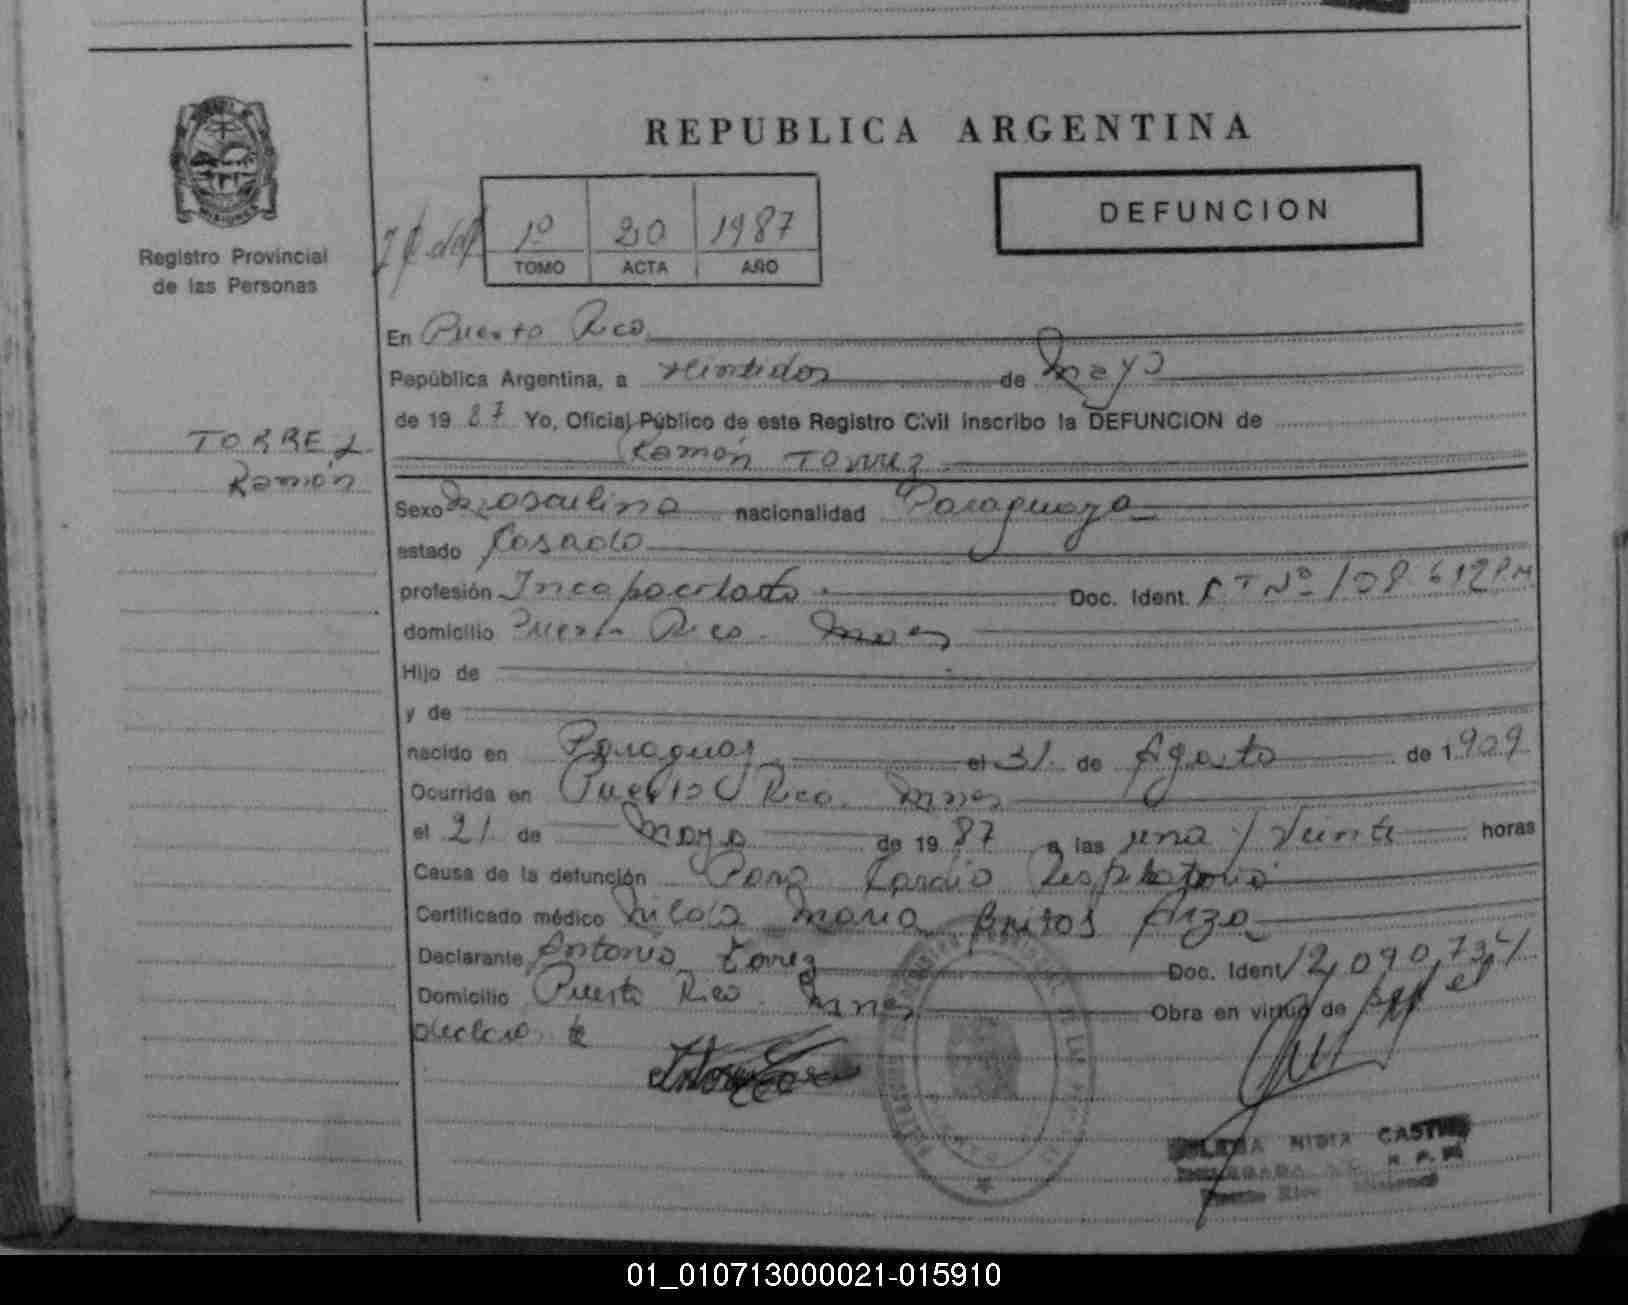 REPUBLICA ARGENTINA
DEFUNCION
MISIONES
Registro Provincial
de las Personas
1º 20 1987
TOMO ACTA AÑO
En Puerto Rico
República Argentina, a veintidos de Mayo
de 1987 Yo, Oficial Público de este Registro Civil inscribo la DEFUNCION de
Ramón Torrez
TORREZ
Ramón
Sexo Masculino nacionalidad Paraguaya
estado Casado
profesión Incapacitado Doc. Ident. Nº 108 612
domicilio Puerto Rico. Mnes
Hijo de
y de
nacido en Paraguay el 31 de Agosto de 1909
Ocurrida en Puerto Rico. Mnes
el 21 de Mayo de 1987 a las una y veinte horas
Causa de la defunción Paro Cardio Respiratorio
Certificado médico Maria Britos
Declarante Antonio Torrez Doc. Ident 12,090,734
Domicilio Puerto Rico. Mnes Obra en virtud de
NIDIA
01_010713000021-015910